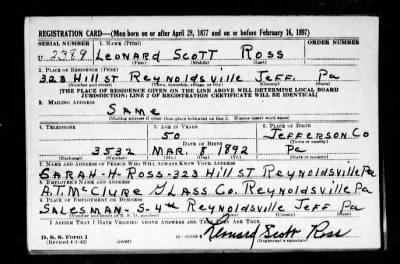 REGISTRATION CARD—(Men born on or after April 28, 1877 and on or before February 16, 1897)
SERIAL NUMBER 1. NAME (Print) ORDER NUMBER
U 2389 LEONARD SCOTT ROSS
(First) (Middle) (Last)
2. PLACE OF RESIDENCE (Print)
323 Hill ST Reynoldsville Jeff. Pa
(Number and street) (Town, township, village, or city) (County) (State)
[THE PLACE OF RESIDENCE GIVEN ON THE LINE ABOVE WILL DETERMINE LOCAL BOARD
JURISDICTION; LINE 2 OF REGISTRATION CERTIFICATE WILL BE IDENTICAL]
3. MAILING ADDRESS
SAME
(Mailing address if other than place indicated on line 2. If same insert word same)
4. TELEPHONE 5. AGE IN YEARS 6. PLACE OF BIRTH
50 JEFFERSON.CO
DATE OF BIRTH (Town or county)
3532 MAR. 8 1892 Pa
(Exchange) (Number) (Mo.) (Day) (Yr.) (State or country)
7. NAME AND ADDRESS OF PERSON WHO WILL ALWAYS KNOW YOUR ADDRESS
SARAH-H-ROSS-323 Hill ST Reynoldsville Pa
8. EMPLOYER'S NAME AND ADDRESS
A.T. McClure GLASS Co. Reynoldsville Pa
9. PLACE OF EMPLOYMENT OR BUSINESS
SALESMAN- S-4th Reynoldsville Jeff Pa
I AFFIRM THAT I HAVE VERIFIED ABOVE ANSWERS AND THAT THEY ARE TRUE.
D. S. S. Form 1 Leonard Scott Ross
(Revised 4-1-42) (over) (Registrant's signature)